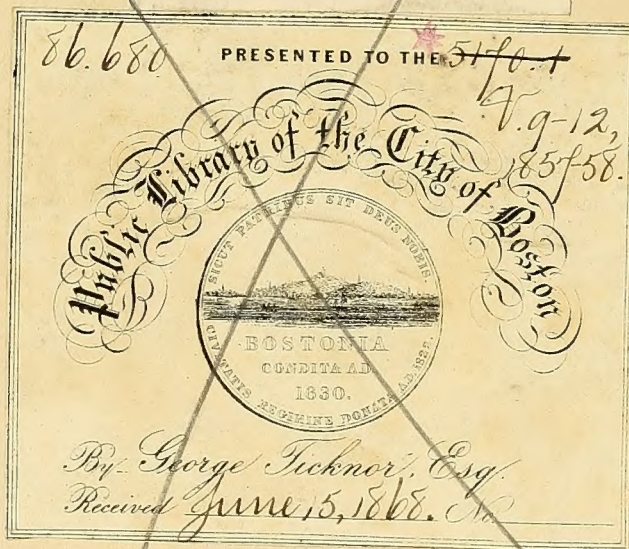 86.680 PRESENTED TO THE 5170.1
V. 9-12,
1857-58.
Public Library of the City of Boston
SICUT PATRIBUS SIT DEUS NOBIS.
BOSTONIA
CONDITA AD.
1630.
CIVITATIS REGIMINE DONATA AD. 1822.
By George Ticknor, Esq.
Received June 15, 1868. No